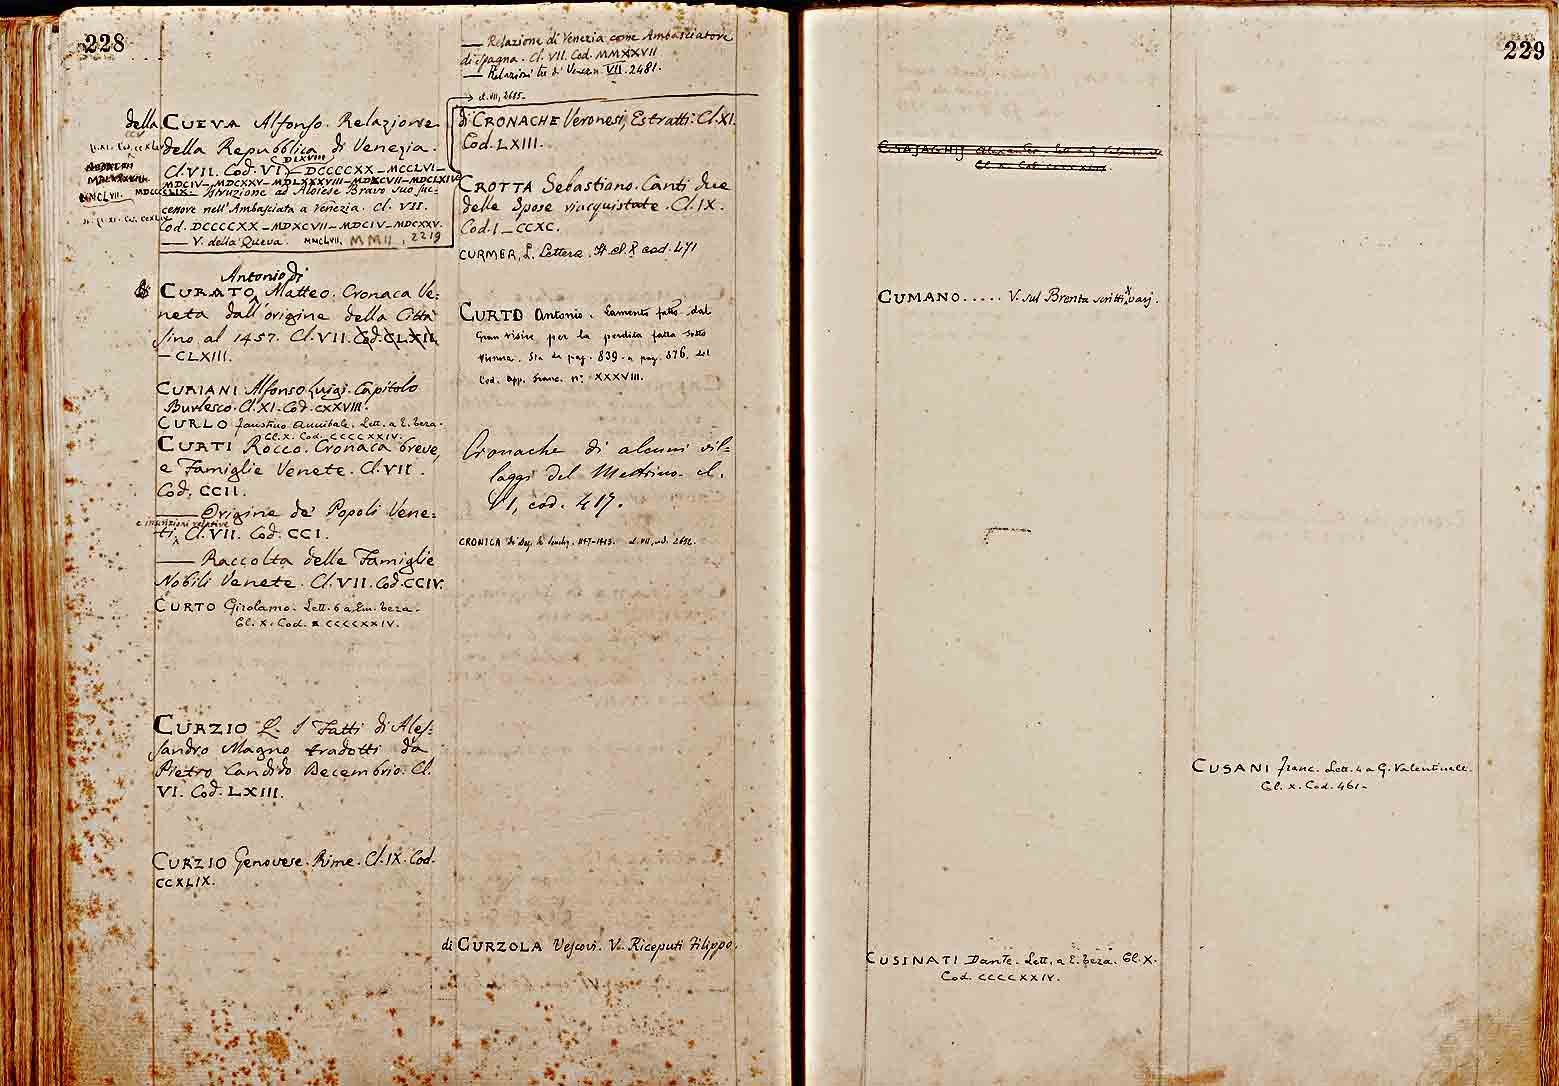 228
della CUEVA Alfonso. Relazione
della Repubblica di Venezia.
DLXVIII
Cl. VII. Cod. VI – DCCCCXX – MCCLVI –
MDCIV – MDCXXV – MDLXXXVIII – MDXCVII – MDCLXIV
Istruzione ad Aloiese Bravo suo suc-
cessore nell'Ambasciata a Venezia. Cl. VII.
Cod. DCCCCXX – MDXCVII – MDCIV – MDCXXV.
— V. della Queva. MMCLVII, MMII, 2219
MMCLVII.
Antonio di
CURATO Matteo. Cronaca Ve:
neta dall'origine della Città
sino al 1457. Cl. VII. Cod. CLXII,
– CLXIII.
CURIANI Alfonso Luigi. Capitolo
Burlesco. Cl. XI. Cod. CXXVIII.
CURLO Faustino Annibale. Lett. a E. Teza.
Cl. X. Cod. CCCCXXIV.
CURTI Rocco. Cronaca breve,
e Famiglie Venete. Cl. VII.
Cod. CCII.
— Origine de' Popoli Vene:
e iscrizioni relative
ti, Cl. VII. Cod. CCI.
— Raccolta delle Famiglie
Nobili Venete. Cl. VII. Cod. CCIV.
CURTO Girolamo. Lett. 6 a Em. Teza.
Cl. X. Cod. CCCCXXIV.
CURZIO Q. I Fatti di Ales:
sandro Magno tradotti da
Pietro Candido Decembrio. Cl.
VI. Cod. LXIII.
CURZIO Genovese. Rime. Cl. IX. Cod.
CCXLIX.
— Relazione di Venezia come Ambasciatore
di Spagna. Cl. VII. Cod. MMXXVII
— Relazioni tre di Venezia VII. 2481.
→ cl. VII, 2615.
di CRONACHE Veronesi, Estratti. Cl. XI.
Cod. LXIII.
CROTTA Sebastiano. Canti due
delle Spose riacquistate. Cl. IX.
Cod. I – CCXC.
CURMER, L. Lettera. It. cl. X cod. 471
CURTO Antonio. Lamento fatto dal
Gran visire per la perdita fatta sotto
Vienna. Sta da pag. 839 a pag. 876, del
Cod. App. Franc. n: XXXVIII.
Cronache di alcuni vil=
laggi del Mestrino. cl.
VI, cod. 417.
CRONICA cl. VII, cod.
di CURZOLA Vescovi. V. Riceputi Filippo.
229
CUMANO ..... V. sul Brenta scritti varj.
CUSINATI Dante. Lett. a E. Teza. Cl. X.
Cod. CCCCXXIV.
CUSANI Franc. Lett. 4 a G. Valentinelli.
Cl. X. Cod. 461-